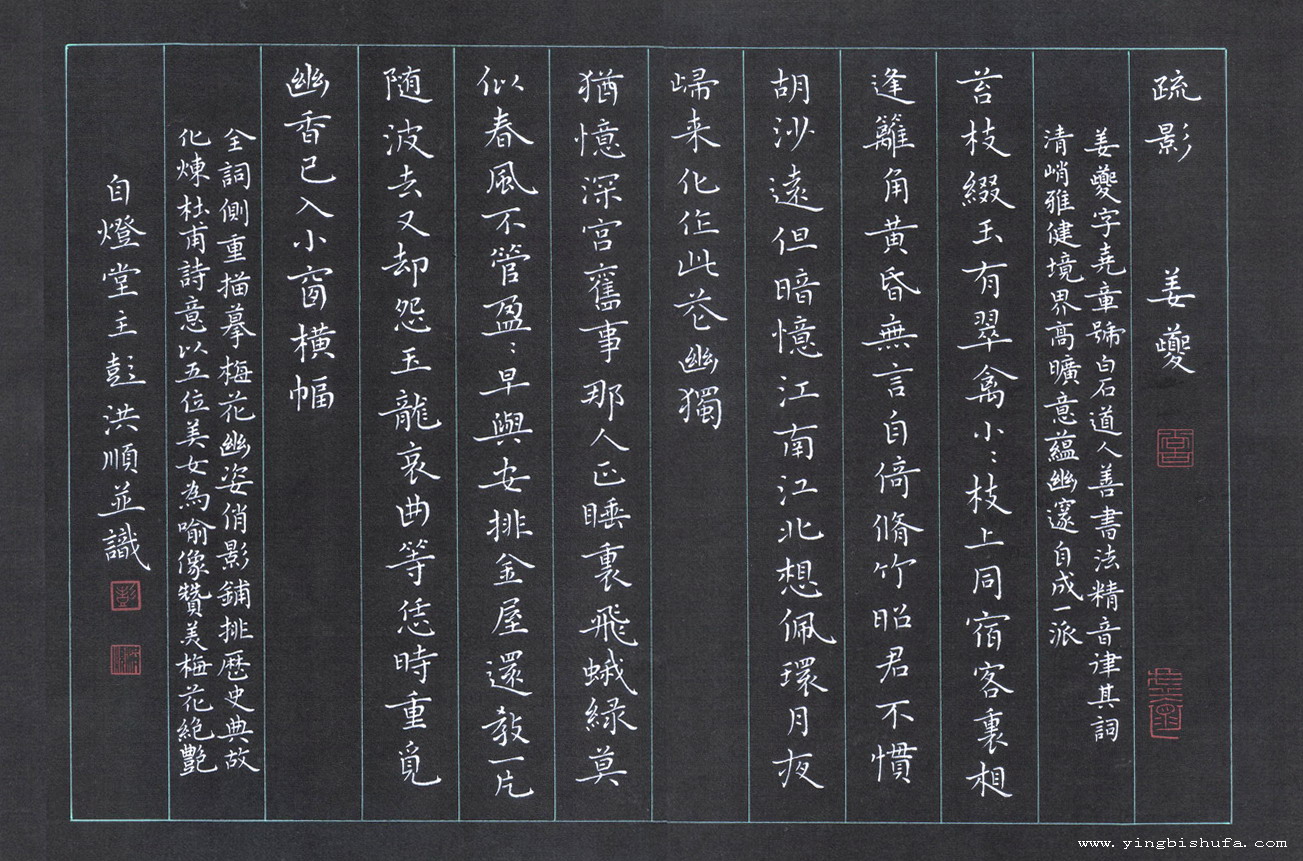 疏影 姜夔
姜夔字堯章號白石道人善書法精音律其詞
清峭雅健境界高曠意蘊幽邃自成一派
苔枝綴玉有翠禽小〻枝上同宿客裏相
逢籬角黄昏無言自倚脩竹昭君不慣
胡沙遠但暗憶江南江北想佩環月夜
歸来化作此花幽獨
猶憶深宫舊事那人正睡裏飛蛾緑莫
似春風不管盈〻早與安排金屋還教一片
随波去又却怨玉龍哀曲等恁時重覓
幽香已入小窗横幅
全詞側重描摹梅花幽姿俏影鋪排歷史典故
化煉杜甫詩意以五位美女為喻像贊美梅花絶艷
自燈堂主彭洪順並識
www.yingbishufa.com